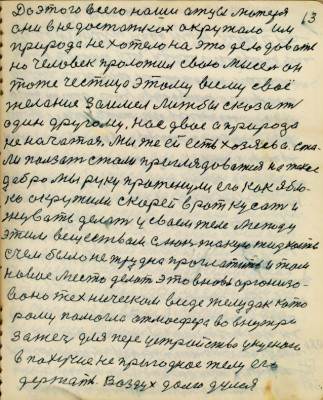 До этого всего наши отцы матеря
они в недостатках окружало им 13
природа не хотело на это дело довать
но человек проложил свою мисел он
тоже честицо этому всему своё
желание заимел лижбы сказат
один другому. Нас двое а природа
не початая, мы же ей есть хозяева. ста-
ли ползат стали приглядоватся на такое
добро мы руку протянули его как ябло-
ко окружили скорей в рот кусат и
жувать делат у своём теле между
этим веществам слюнявую жидкость
с чем было не трудно проглатит и там
новое место делат это вновь организо-
вано техническом вседе желудак кото
рому помогла атмосфера во внутри
зажеч для пере устройства укусного
в похучие не пригодное телу его
держать. Воздух дало дулся